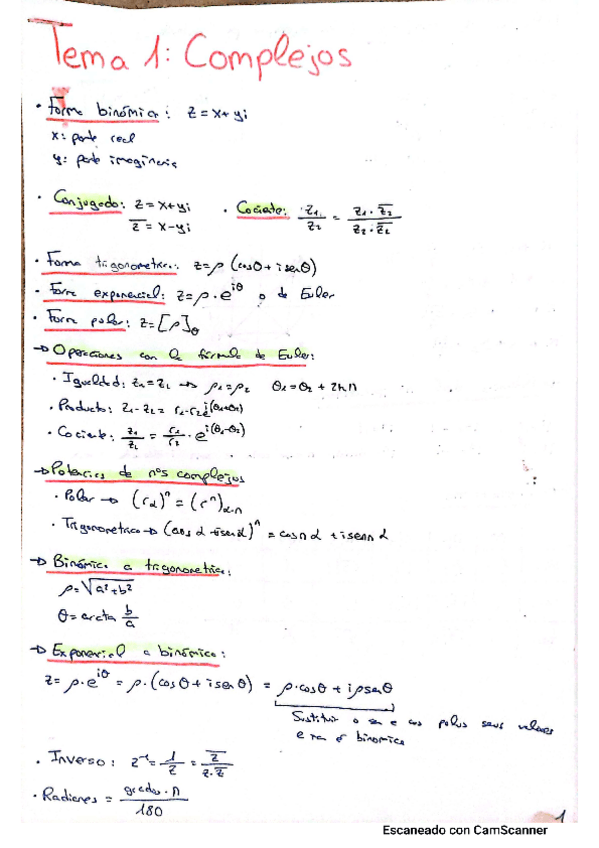 Tema 1: Complejos
• Forma binómica: z = x+yi
x: parte real
y: parte imaginaria
• Conjugado: z = x+yi
z̅ = x-yi
• Cociente: z₁/z₂ = z₁·z̅₂/z₂·z̅₂
• Forma trigonometrica: z=ρ (cosθ + i senθ)
• Forma exponencial: z = ρ·e^iθ o de Euler
• Forma polar: z=[ρ]θ
→ Operaciones con la fórmula de Euler:
• Igualdad: z₁=z₂ → ρ₁=ρ₂ θ₁=θ₂ + 2kπ
• Producto: z₁·z₂ = r₁·r₂e^i(θ₁+θ₂)
• Cociente: z₁/z₂ = r₁/r₂ · e^i(θ₁-θ₂)
→ Potencias de nºs complejos
• Polar → (rα)ⁿ = (rⁿ)α·n
• Trigonometrica → (cos α + isen α)ⁿ = cosn α + isenn α
→ Binómica a trigonometrica:
ρ=√a²+b²
θ = arctg b/a
→ Exponencial a binómica:
z= ρ·e^iθ = ρ·(cosθ + i senθ) = ρ·cosθ + iρsenθ
Sustituir o sen e cos polos seus valores
e xa é binomica
• Inverso: z⁻¹ = 1/z = z̅/z·z̅
• Radianes = grados·π/180
1
Escaneado con CamScanner